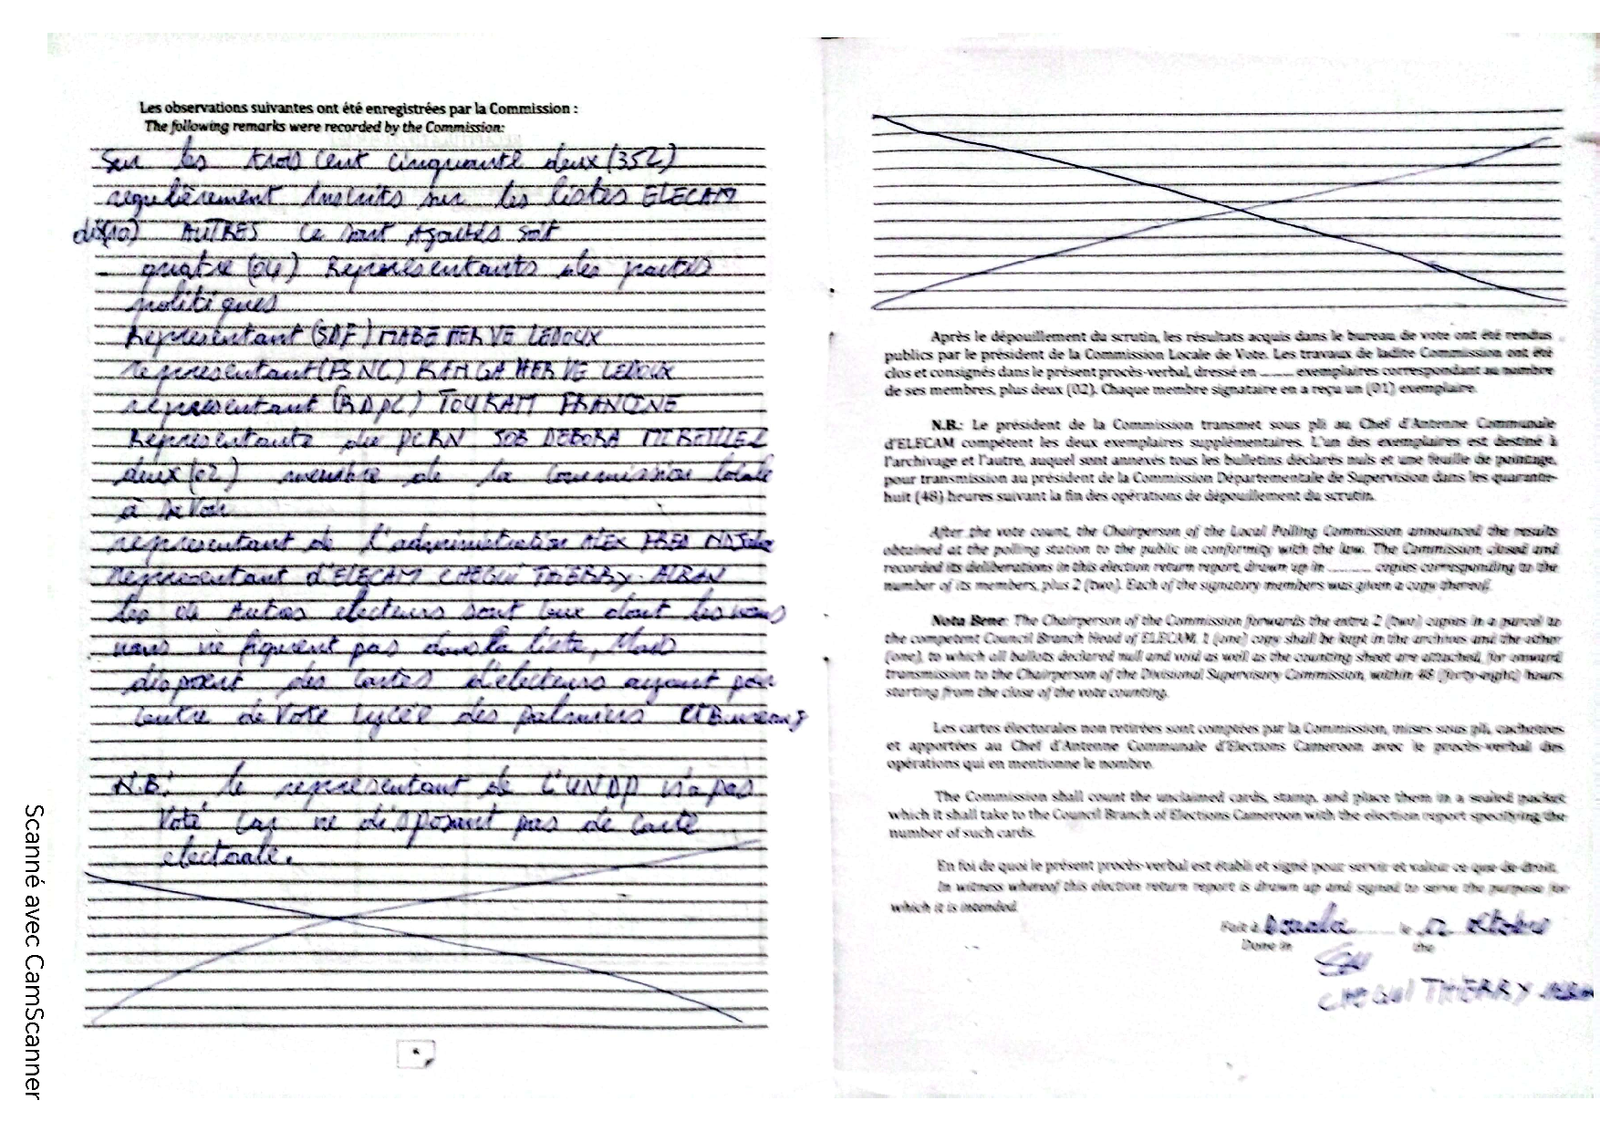 Les observations suivantes ont été enregistrées par la Commission :
The following remarks were recorded by the Commission:
Sur les trois cent cinquante deux (352)
regulièrement Inscrits sur les listes ELECAM
dix(10) AUTRES Ce sont Ajoutés soit
- quatre (04) Representants des partis
politiques
Representant (SDF) MABE HERVE LEDOUX
representant (FSNC) KAMGA HERVE LEDOUX
representant (RDPC) TOUKAM FRANCINE
Representante du PCRN SOB DEBORA
deux (02) membre de la Commission locale
representant de l'administration ALEX FRED
representant d'ELECAM CHEGUI THIERRY ALBAN
les 04 Autres electeurs sont ceux dont les noms
nous ne figurent pas dans la liste, Mais
disposent des Cartes d'électeurs ayant pour
Centre de Vote Lycée des palmiers
N.B: le representant de L'UNDP n'a pas
Voté Car ne disposant pas de Carte
electorale.
Après le dépouillement du scrutin, les résultats acquis dans le bureau de vote ont été rendus
publics par le président de la Commission Locale de Vote. Les travaux de ladite Commission ont été
clos et consignés dans le présent procès-verbal, dressé en ......... exemplaires correspondant au nombre
de ses membres, plus deux (02). Chaque membre signataire en a reçu un (01) exemplaire.
N.B.: Le président de la Commission transmet sous pli au Chef d'Antenne Communale
d'ELECAM compétent les deux exemplaires supplémentaires. L'un des exemplaires est destiné à
l'archivage et l'autre, auquel sont annexés tous les bulletins déclarés nuls et une feuille de pointage,
pour transmission au président de la Commission Départementale de Supervision dans les quarante-
huit (48) heures suivant la fin des opérations de dépouillement du scrutin.
After the vote count, the Chairperson of the Local Polling Commission announced the results
obtained at the polling station to the public in conformity with the law. The Commission closed and
recorded its deliberations in this election return report, drawn up in ......... copies corresponding to the
number of its members, plus 2 (two). Each of the signatory members was given a copy thereof.
Nota Bene: The Chairperson of the Commission forwards the extra 2 (two) copies in a parcel to
the competent Council Branch Head of ELECAM. 1 (one) copy shall be kept in the archives and the other
(one), to which all ballots declared null and void as well as the counting sheet are attached, for onward
transmission to the Chairperson of the Divisional Supervisory Commission, within 48 (forty-eight) hours
starting from the close of the vote counting.
Les cartes électorales non retirées sont comptées par la Commission, mises sous pli, cachetées
et apportées au Chef d'Antenne Communale d'Elections Cameroon avec le procès-verbal des
opérations qui en mentionne le nombre.
The Commission shall count the unclaimed cards, stamp, and place them in a sealed packet
which it shall take to the Council Branch of Elections Cameroon with the election report specifying the
number of such cards.
En foi de quoi le présent procès-verbal est établi et signé pour servir et valoir ce que de droit.
In witness whereof this election return report is drawn up and signed to serve the purpose for
which it is intended.
Fait à Douala le 12 octobre
Done in the
CHEGUI THIERRY ALBAN
Scanné avec CamScanner